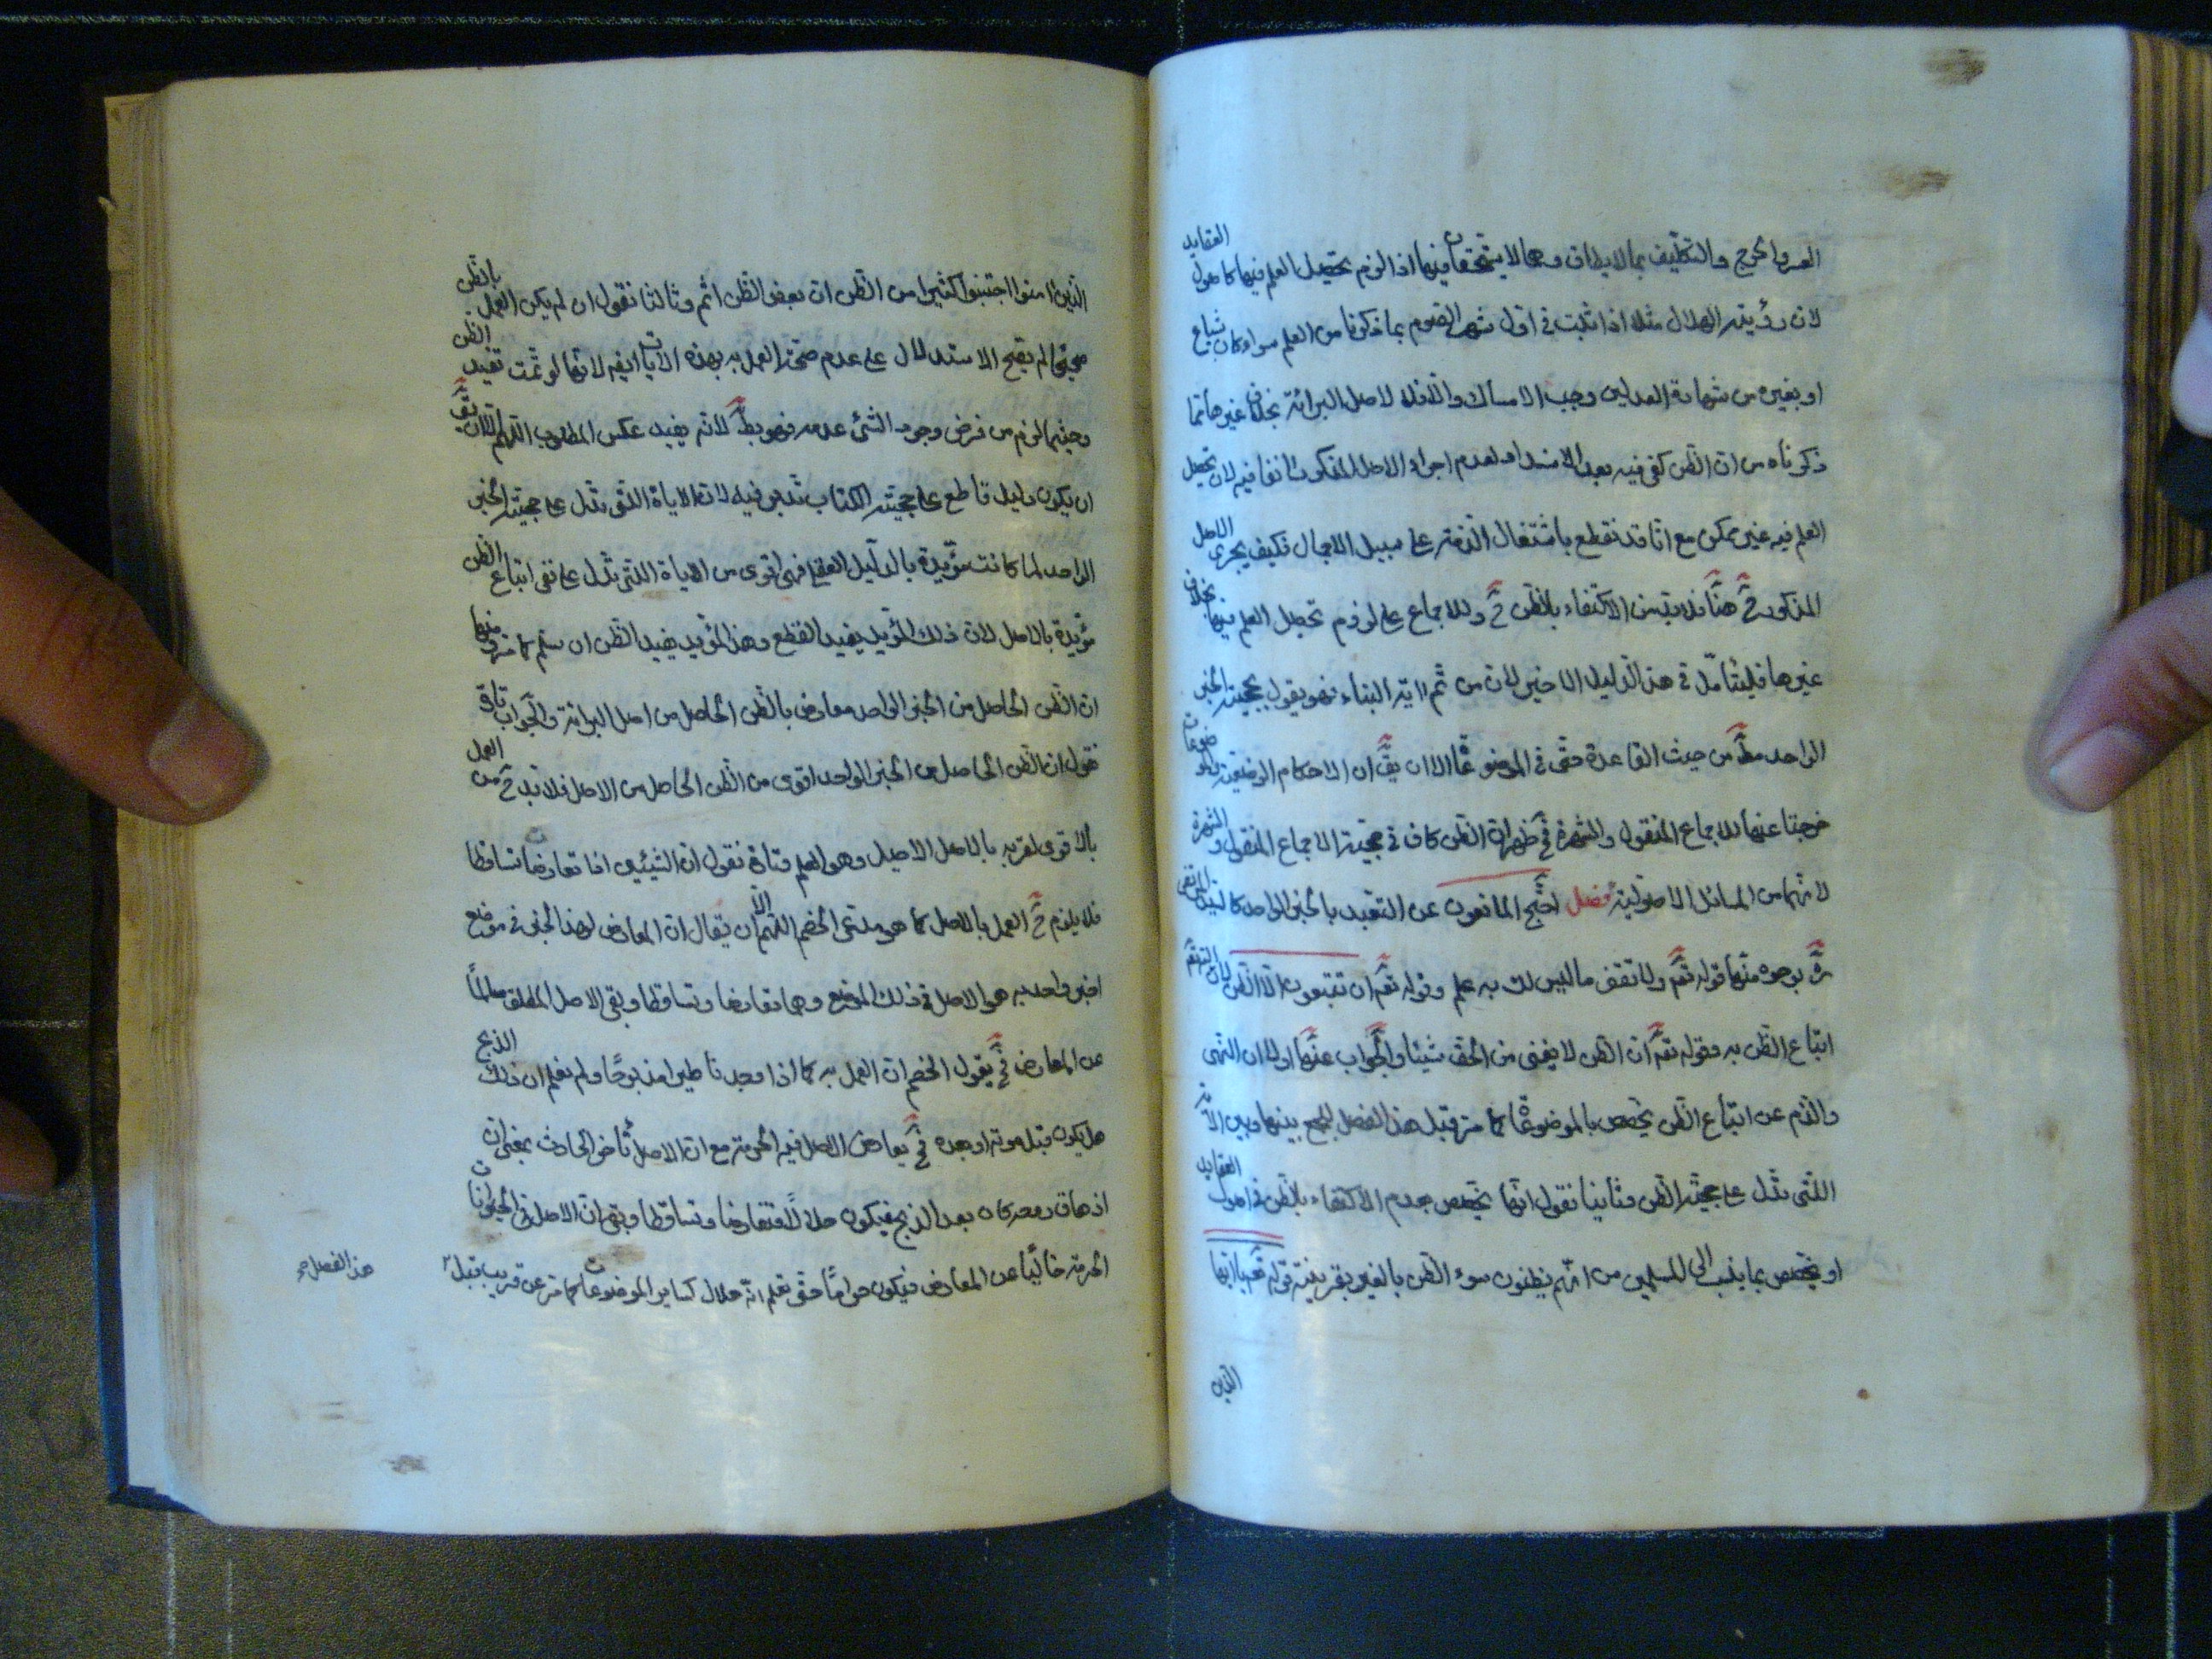 العسر والحرج والتكليف بما لا يطاق وهما لا يتحققان فيهما اذا لزم تحصيل العلم فيهما كاصول العقايد
لان رؤية الهلال مثلا اذا ثبت في اول شهر الصوم بما ذكرنا من العلم سواء كان بشياع
او بغيره من شهادة العدلين وجب الامساك والا فلا لاصل البرائة بخلاف غيرها مما
ذكرناه من ان الظن كفى فيه بعد الانسداد لعدم اجراء الاصل المذكور انفا فيه لان تحصيل
العلم فيه غير ممكن مع انا قد نقطع باشتغال الذمة على سبيل الاجمال فكيف يجرى الاصل
المذكور ح هنا فلا بد من الاكتفاء بالظن ح وللاجماع على لزوم تحصيل العلم فيها بخلاف
غيرها فليتامل في هذا الدليل الاخير لان من ثم اية البناء فهو يقول بحجية الخبر
الواحد مط من حيث القاعدة حتى في الموضوعات الا ان يق ان الاحكام الوضعية والموضوعات
خرجتا عنها للاجماع المنقول والشهرة فح ظهر ان الظن كاف في حجية الاجماع المنقول والشهرة
لانهما من المسائل الاصولية فصل احتج المانعون عن التعبد بالخبر الواحد كالسيد المرتضى
ره بوجوه منها قوله تعم ولا تقف ما ليس لك به علم وقوله تعم ان تتبعون الا الظن لان التهم
اتباع الظن به وقوله تعم ان الظن لا يغنى من الحق شيئا والجواب عنها اولا ان النهى
والذم عن اتباع الظن يختص بالموضوعات كما مر قبل هذا الفصل للجمع بينها وبين الاية
اللتى تدل على حجية الظن وثانيا نقول انها يختص بعدم الاكتفاء بالظن في اصول العقايد
او يختص بما ينسب الى المسلمين من انهم يظنون سوء الظن بالغير بقرينة قوله تعم يا ايها
الذين
الذين امنوا اجتنبوا كثيرا من الظن ان بعض الظن اثم وثالثا نقول ان لم يكن العمل بالظن
صحيحا لم يصح الاستدلال على عدم صحة العمل به بهذه الايات ايضا لانها لو تمت تفيد الظن
وحينها لزم من فرض وجود الشئ عدمه فهو بط لانه يفيد عكس المطلوب اللهم الا ان يق
ان يكون دليل قاطع على حجية الكتاب تدبر فيه لان الاياة اللتى تدل على حجية الخبر
الواحد لما كانت مؤيدة بالدليل العقلى فهى اقوى من الاياة اللتى تدل على نفى اتباع الظن
مؤيدة بالاصل لان ذلك المؤيد يفيد القطع وهذا المؤيد يفيد الظن ان سلم كما مر ومنها
ان الظن الحاصل من الخبر الواحد معارض بالظن الحاصل من اصل البرائة والجواب تارة
نقول ان الظن الحاصل من الخبر الواحد اقوى من الظن الحاصل من الاصل فلا بد ح من العمل
بالاقوى لقربه بالاصل الاصيل وهو العلم وتارة نقول ان الشيئين اذا تعارضا تساقطا
فلا يلزم ح العمل بالاصل كما هو مدعى الخصم اللهم الا ان يقال ان المعارض لهذا الخبر في موضع
اخبر واحد به هو الاصل في ذلك الموضع وهما تعارضا وتساقطا وبقى الاصل المطلق سالما
عن المعارض فح يقول الخصم ان العمل به كما اذا وجدنا طيرا مذبوحا ولم نعلم ان ذلك الذبح
هل يكون قبل موته او بعده فح يعارض الاصل فيه الحرمة مع ان الاصل تأخر الحادث بمعنى ان
اذهاق روحه كان بعد الذبح فيكون حلالا فتعارضا وتساقطا وبقى ان الاصل في الحيوانات
الحرمة خاليا عن المعارض فيكون حراما حتى نعلم انه حلال كساير الموضوعات كما مر عن قريب قبل
هذا الفصل